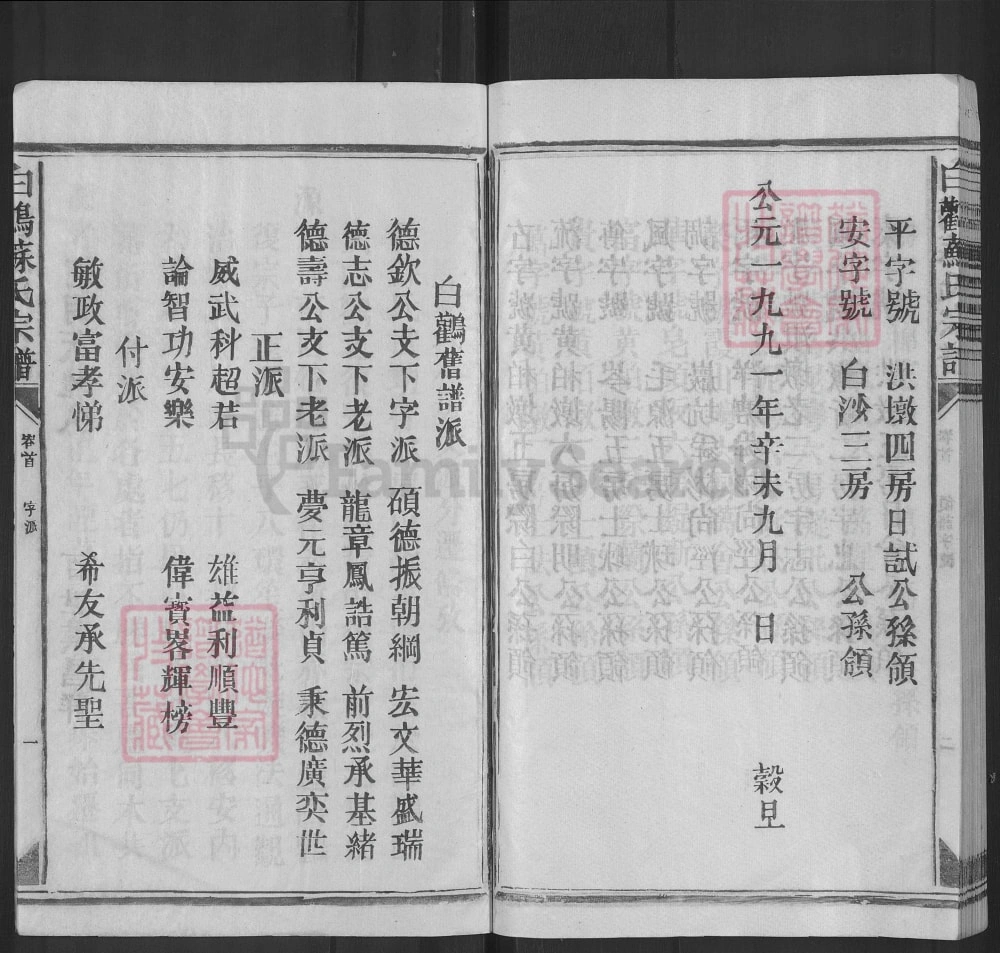 平字號 洪墩四房日試公孫領
安字號 白沙三房 公孫領
公元一九九一年辛未九月 日 穀旦
白鸛舊譜派
德欽公支下字派 碩德振朝綱 宏文華盛瑞
德志公支下老派 龍章鳳誥篤 前烈承基緒
德壽公支下老派 夢元亨利貞 秉德廣奕世
正派
威武科超君 雄益利順豐
論智功安樂 偉寶畧輝榜
付派
敏政富孝悌 希友承先聖
蘇氏宗譜
卷首 字派 一
FamilySearch